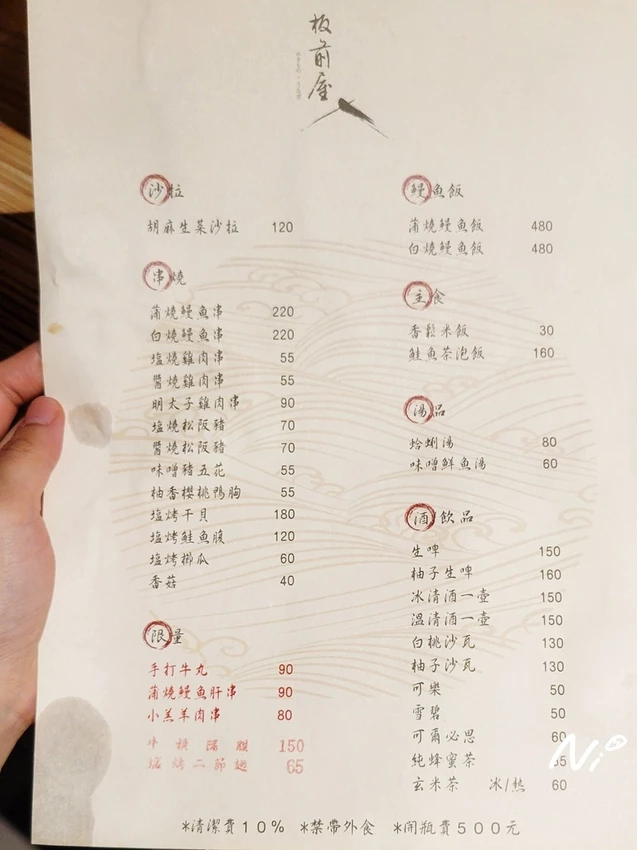 板前屋
沙拉
胡麻生菜沙拉 120
串燒
蒲燒鰻魚串 220
白燒鰻魚串 220
塩燒雞肉串 55
醬燒雞肉串 55
明太子雞肉串 90
塩燒松阪豬 70
醬燒松阪豬 70
味噌豬五花 55
柚香櫻桃鴨胸 55
塩烤干貝 180
塩烤鮭魚腹 120
塩烤櫛瓜 60
香菇 40
限量
手打牛丸 90
蒲燒鰻魚肝串 90
小羔羊肉串 80
牛橫隔膜 150
塩烤二節翅 65
鰻魚飯
蒲燒鰻魚飯 480
白燒鰻魚飯 480
主食
香鬆米飯 30
鮭魚茶泡飯 160
湯品
蛤蜊湯 80
味噌鮮魚湯 60
酒飲品
生啤 150
柚子生啤 160
冰清酒一壺 150
溫清酒一壺 150
白桃沙瓦 130
柚子沙瓦 130
可樂 50
雪碧 50
可爾必思 60
純蜂蜜茶
玄米茶 冰/熱 60
Ni
*清潔費10% *禁帶外食 *開瓶費500元